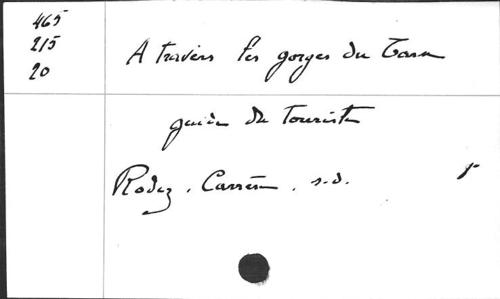 465
215
20
A travers les gorges du Tarn
guide du touriste
Rodez, Carrère, s.d.